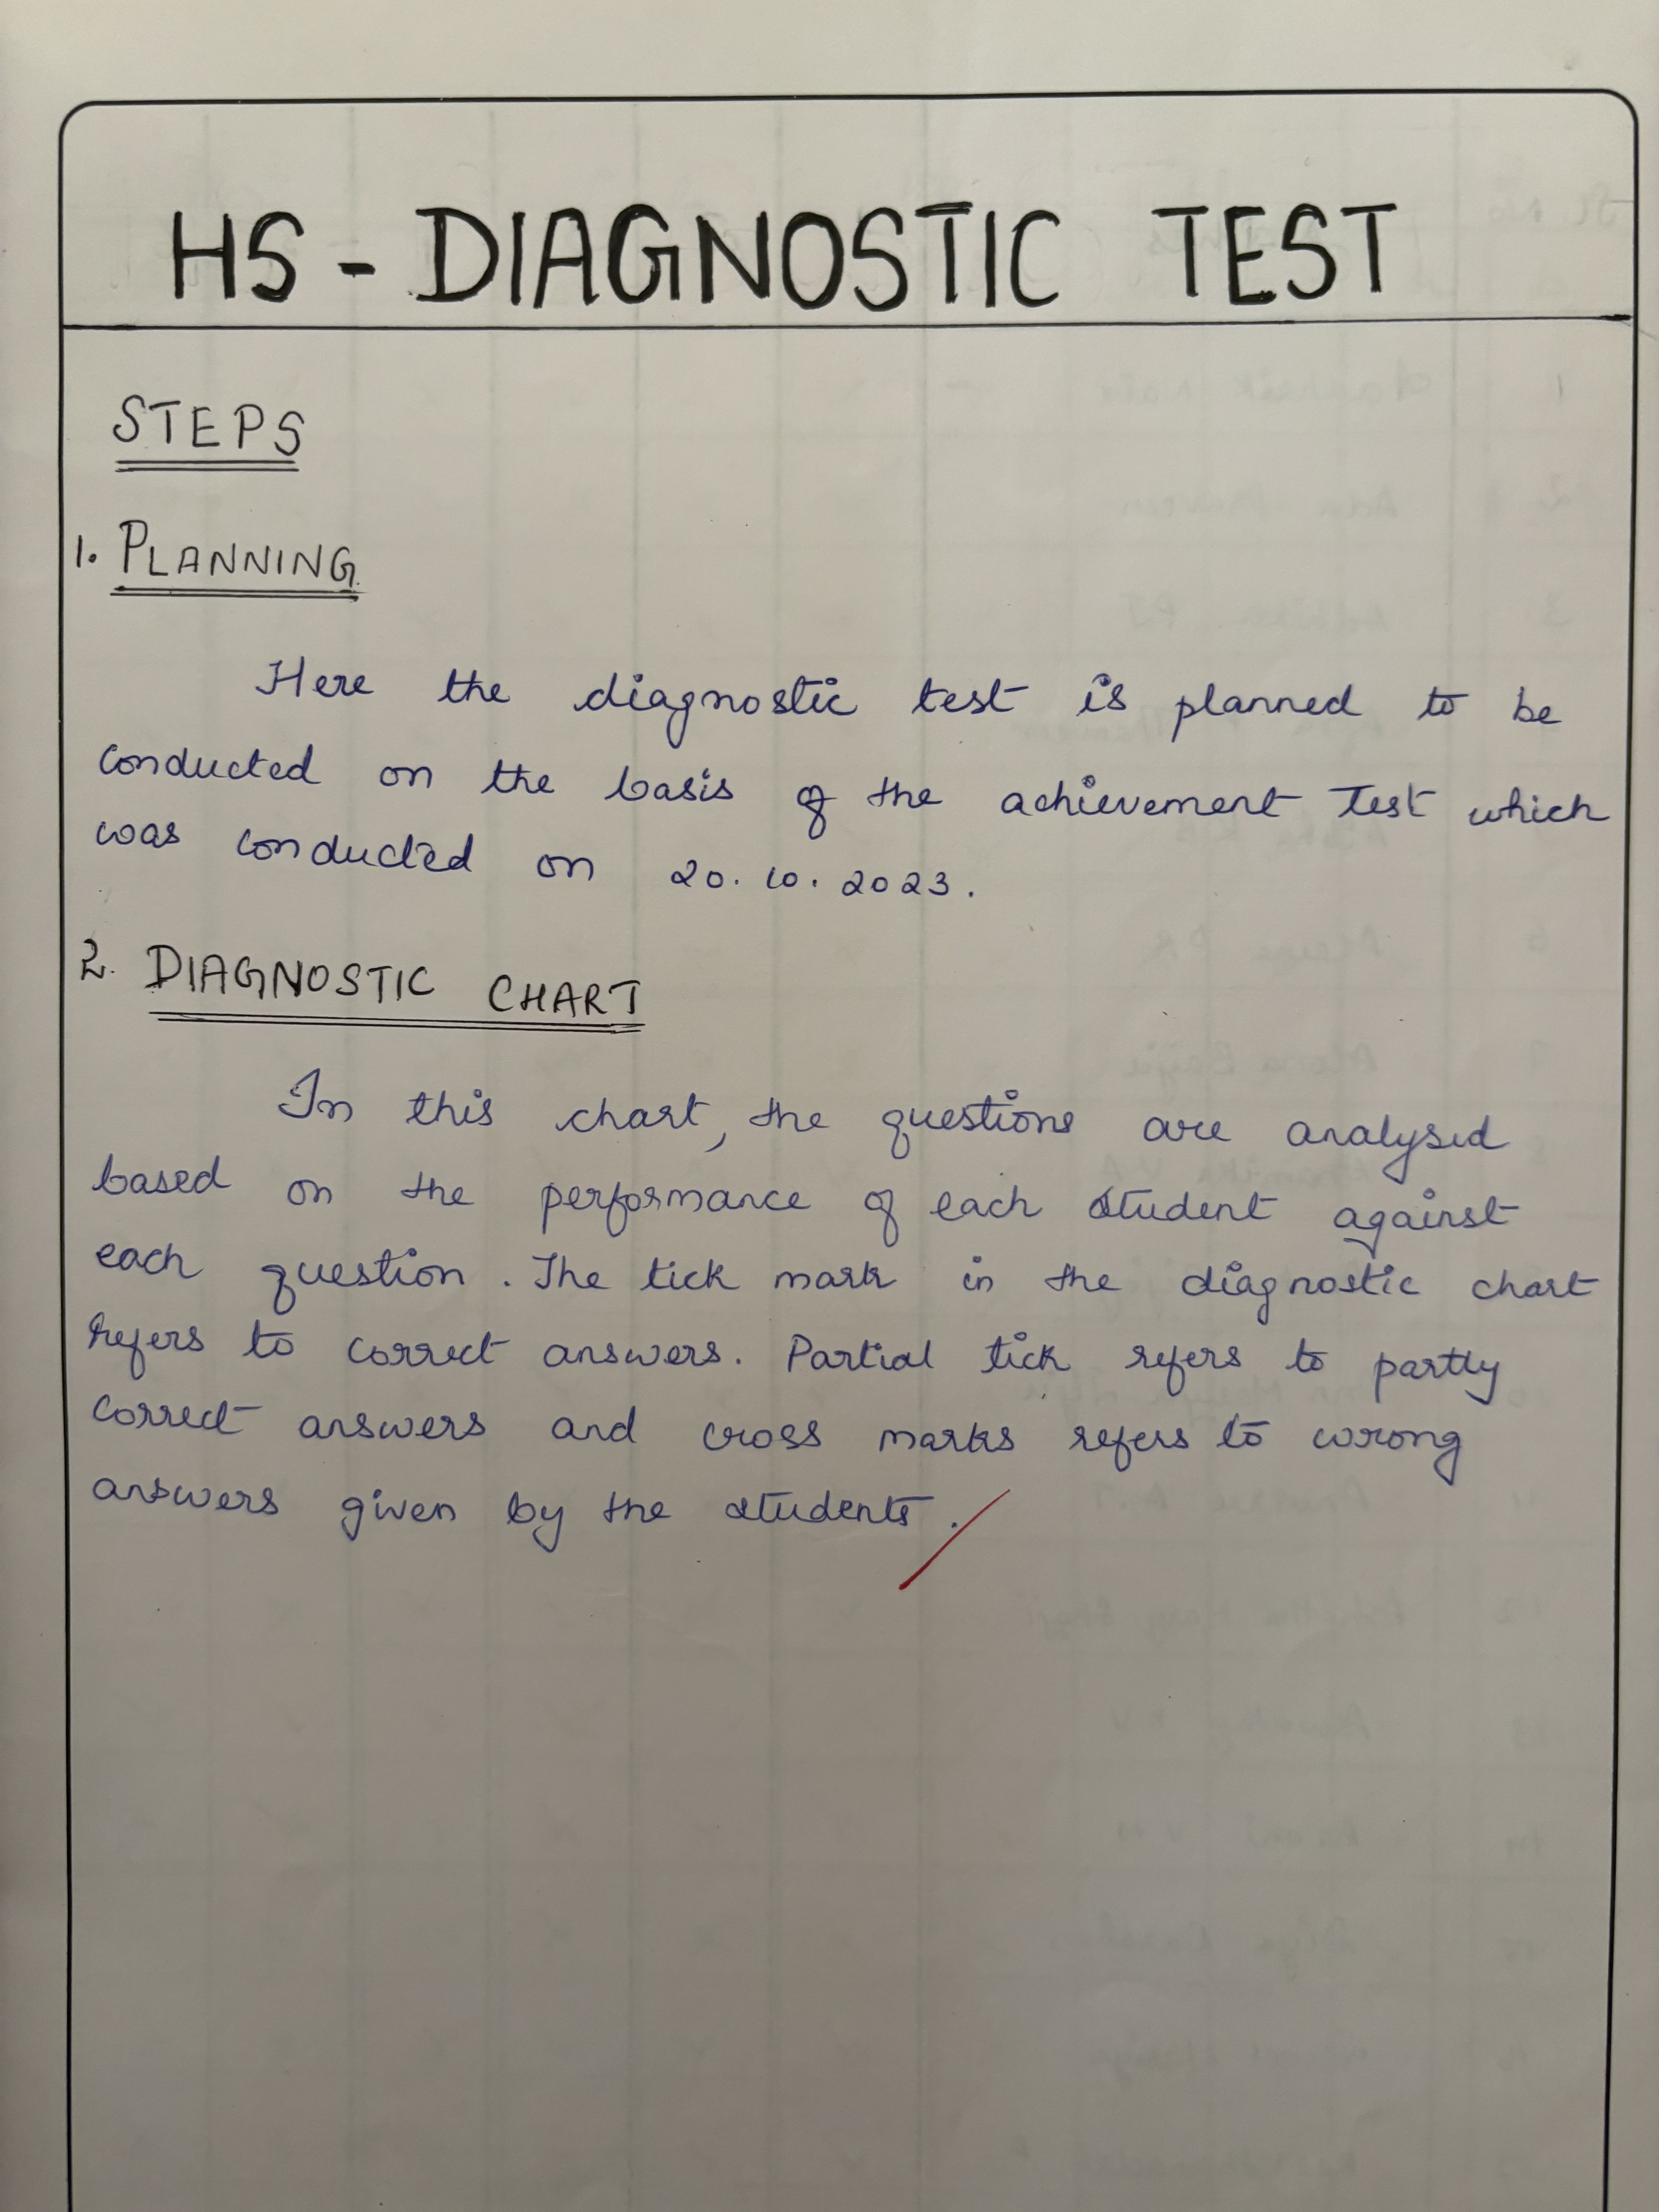 HS - DIAGNOSTIC TEST
STEPS
1. PLANNING
Here the diagnostic test is planned to be
conducted on the basis of the achievement Test which
was conducted on 20.10.2023.
2. DIAGNOSTIC CHART
In this chart, the questions are analysed
based on the performance of each student against
each question. The tick mark in the diagnostic chart
refers to correct answers. Partial tick refers to partly
correct answers and cross marks refers to wrong
answers given by the students.